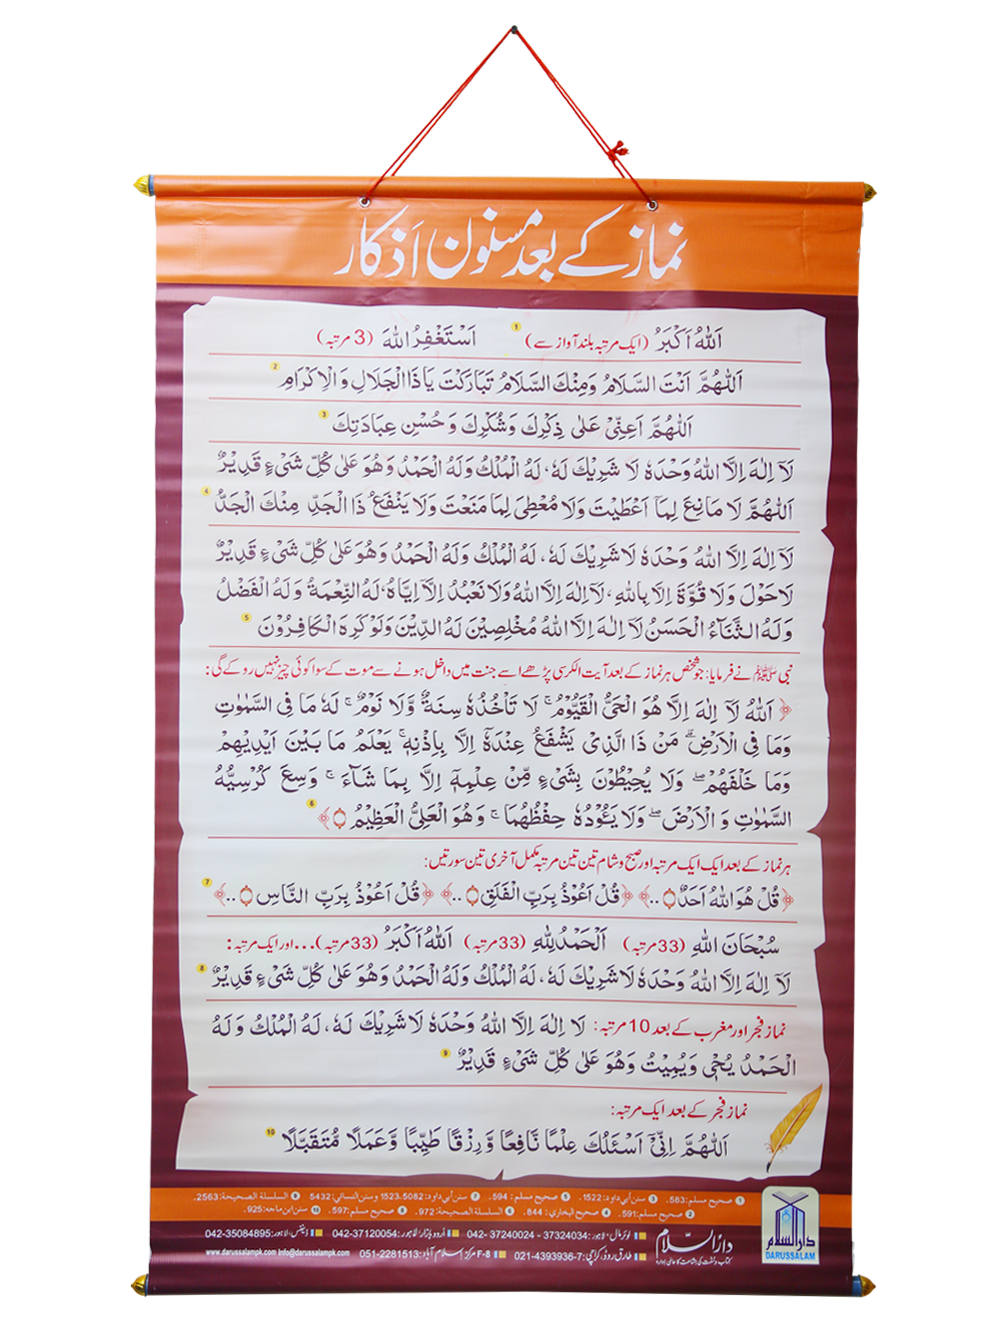 نماز کے بعد مسنون اَذکار
اَللّٰهُ اَكْبَرُ (ایک مرتبہ بلند آواز سے) 1 اَسْتَغْفِرُ اللّٰهَ (3 مرتبہ)
اَللّٰهُمَّ اَنْتَ السَّلَامُ وَمِنْكَ السَّلَامُ تَبَارَكْتَ يَا ذَا الْجَلَالِ وَالْاِكْرَامِ 2
اَللّٰهُمَّ اَعِنِّيْ عَلٰى ذِكْرِكَ وَشُكْرِكَ وَحُسْنِ عِبَادَتِكَ 3
لَآ اِلٰهَ اِلَّا اللّٰهُ وَحْدَهٗ لَا شَرِيْكَ لَهٗ، لَهُ الْمُلْكُ وَلَهُ الْحَمْدُ وَهُوَ عَلٰى كُلِّ شَيْءٍ قَدِيْرٌ
اَللّٰهُمَّ لَا مَانِعَ لِمَآ اَعْطَيْتَ وَلَا مُعْطِيَ لِمَا مَنَعْتَ وَلَا يَنْفَعُ ذَا الْجَدِّ مِنْكَ الْجَدُّ 4
لَآ اِلٰهَ اِلَّا اللّٰهُ وَحْدَهٗ لَا شَرِيْكَ لَهٗ، لَهُ الْمُلْكُ وَلَهُ الْحَمْدُ وَهُوَ عَلٰى كُلِّ شَيْءٍ قَدِيْرٌ
لَا حَوْلَ وَلَا قُوَّةَ اِلَّا بِاللّٰهِ، لَآ اِلٰهَ اِلَّا اللّٰهُ وَلَا نَعْبُدُ اِلَّآ اِيَّاهُ، لَهُ النِّعْمَةُ وَلَهُ الْفَضْلُ
وَلَهُ الثَّنَآءُ الْحَسَنُ لَآ اِلٰهَ اِلَّا اللّٰهُ مُخْلِصِيْنَ لَهُ الدِّيْنَ وَلَوْ كَرِهَ الْكَافِرُوْنَ 5
نبی ﷺ نے فرمایا: جو شخص ہر نماز کے بعد آیت الکرسی پڑھے اسے جنت میں داخل ہونے سے موت کے سوا کوئی چیز نہیں روکے گی:
﴿ اَللّٰهُ لَآ اِلٰهَ اِلَّا هُوَ الْحَيُّ الْقَيُّوْمُ ۚ لَا تَاْخُذُهٗ سِنَةٌ وَّلَا نَوْمٌ ۚ لَهٗ مَا فِى السَّمٰوٰتِ
وَمَا فِى الْاَرْضِ ۗ مَنْ ذَا الَّذِيْ يَشْفَعُ عِنْدَهٗٓ اِلَّا بِاِذْنِهٖ ۚ يَعْلَمُ مَا بَيْنَ اَيْدِيْهِمْ
وَمَا خَلْفَهُمْ ۖ وَلَا يُحِيْطُوْنَ بِشَيْءٍ مِّنْ عِلْمِهٖٓ اِلَّا بِمَا شَآءَ ۚ وَسِعَ كُرْسِيُّهُ
السَّمٰوٰتِ وَالْاَرْضَ ۖ وَلَا يَـُٔوْدُهٗ حِفْظُهُمَا ۚ وَهُوَ الْعَلِيُّ الْعَظِيْمُ ۝﴾ 6
ہر نماز کے بعد ایک ایک مرتبہ اور صبح و شام تین تین مرتبہ مکمل آخری تین سورتیں:
﴿قُلْ هُوَ اللّٰهُ اَحَدٌ ۝..﴾ ﴿قُلْ اَعُوْذُ بِرَبِّ الْفَلَقِ ۝..﴾ ﴿قُلْ اَعُوْذُ بِرَبِّ النَّاسِ ۝..﴾ 7
سُبْحَانَ اللّٰهِ (33 مرتبہ) اَلْحَمْدُ لِلّٰهِ (33 مرتبہ) اَللّٰهُ اَكْبَرُ (33 مرتبہ)...اور ایک مرتبہ:
لَآ اِلٰهَ اِلَّا اللّٰهُ وَحْدَهٗ لَا شَرِيْكَ لَهٗ، لَهُ الْمُلْكُ وَلَهُ الْحَمْدُ وَهُوَ عَلٰى كُلِّ شَيْءٍ قَدِيْرٌ 8
نماز فجر اور مغرب کے بعد 10 مرتبہ: لَا اِلٰهَ اِلَّا اللّٰهُ وَحْدَهٗ لَا شَرِيْكَ لَهٗ، لَهُ الْمُلْكُ وَلَهُ
الْحَمْدُ يُحْيٖ وَيُمِيْتُ وَهُوَ عَلٰى كُلِّ شَيْءٍ قَدِيْرٌ 9
نماز فجر کے بعد ایک مرتبہ:
اَللّٰهُمَّ اِنِّيْٓ اَسْئَلُكَ عِلْمًا نَّافِعًا وَّرِزْقًا طَيِّبًا وَّعَمَلًا مُّتَقَبَّلًا 10
1 صحیح مسلم: 583. 3 سنن أبي داود: 1522. 5 صحیح مسلم: 594. 7 سنن أبي داود: 1523،5082 و سنن النسائي: 5432 9 السلسلة الصحيحة: 2563.
2 صحیح مسلم: 591. 4 صحیح البخاري: 844. 6 السلسلة الصحيحة: 972. 8 صحیح مسلم: 597. 10 سنن ابن ماجه: 925.
دارالسلام
کتاب و سنت کی اشاعت کا عالمی ادارہ
لوئر مال، لاہور: 37324034 - 37240024 -042 اُردو بازار لاہور: 042-37120054 ڈیفنس، لاہور: 042-35084895
طارق روڈ، کراچی: 021-4393936-7 F-8 مرکز اسلام آباد: 051-2281513 www.darussalampk.com info@darussalampk.com
دارالسلام
DARUSSALAM